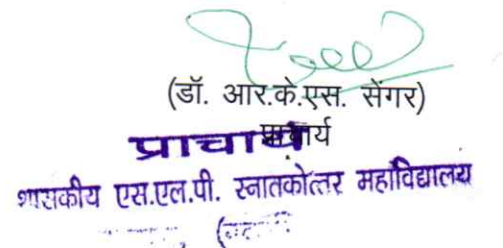 (डॉ. आर.के.एस. सेंगर)
प्राचार्य
प्राचार्य
शासकीय एस.एल.पी. स्नातकोत्तर महाविद्यालय